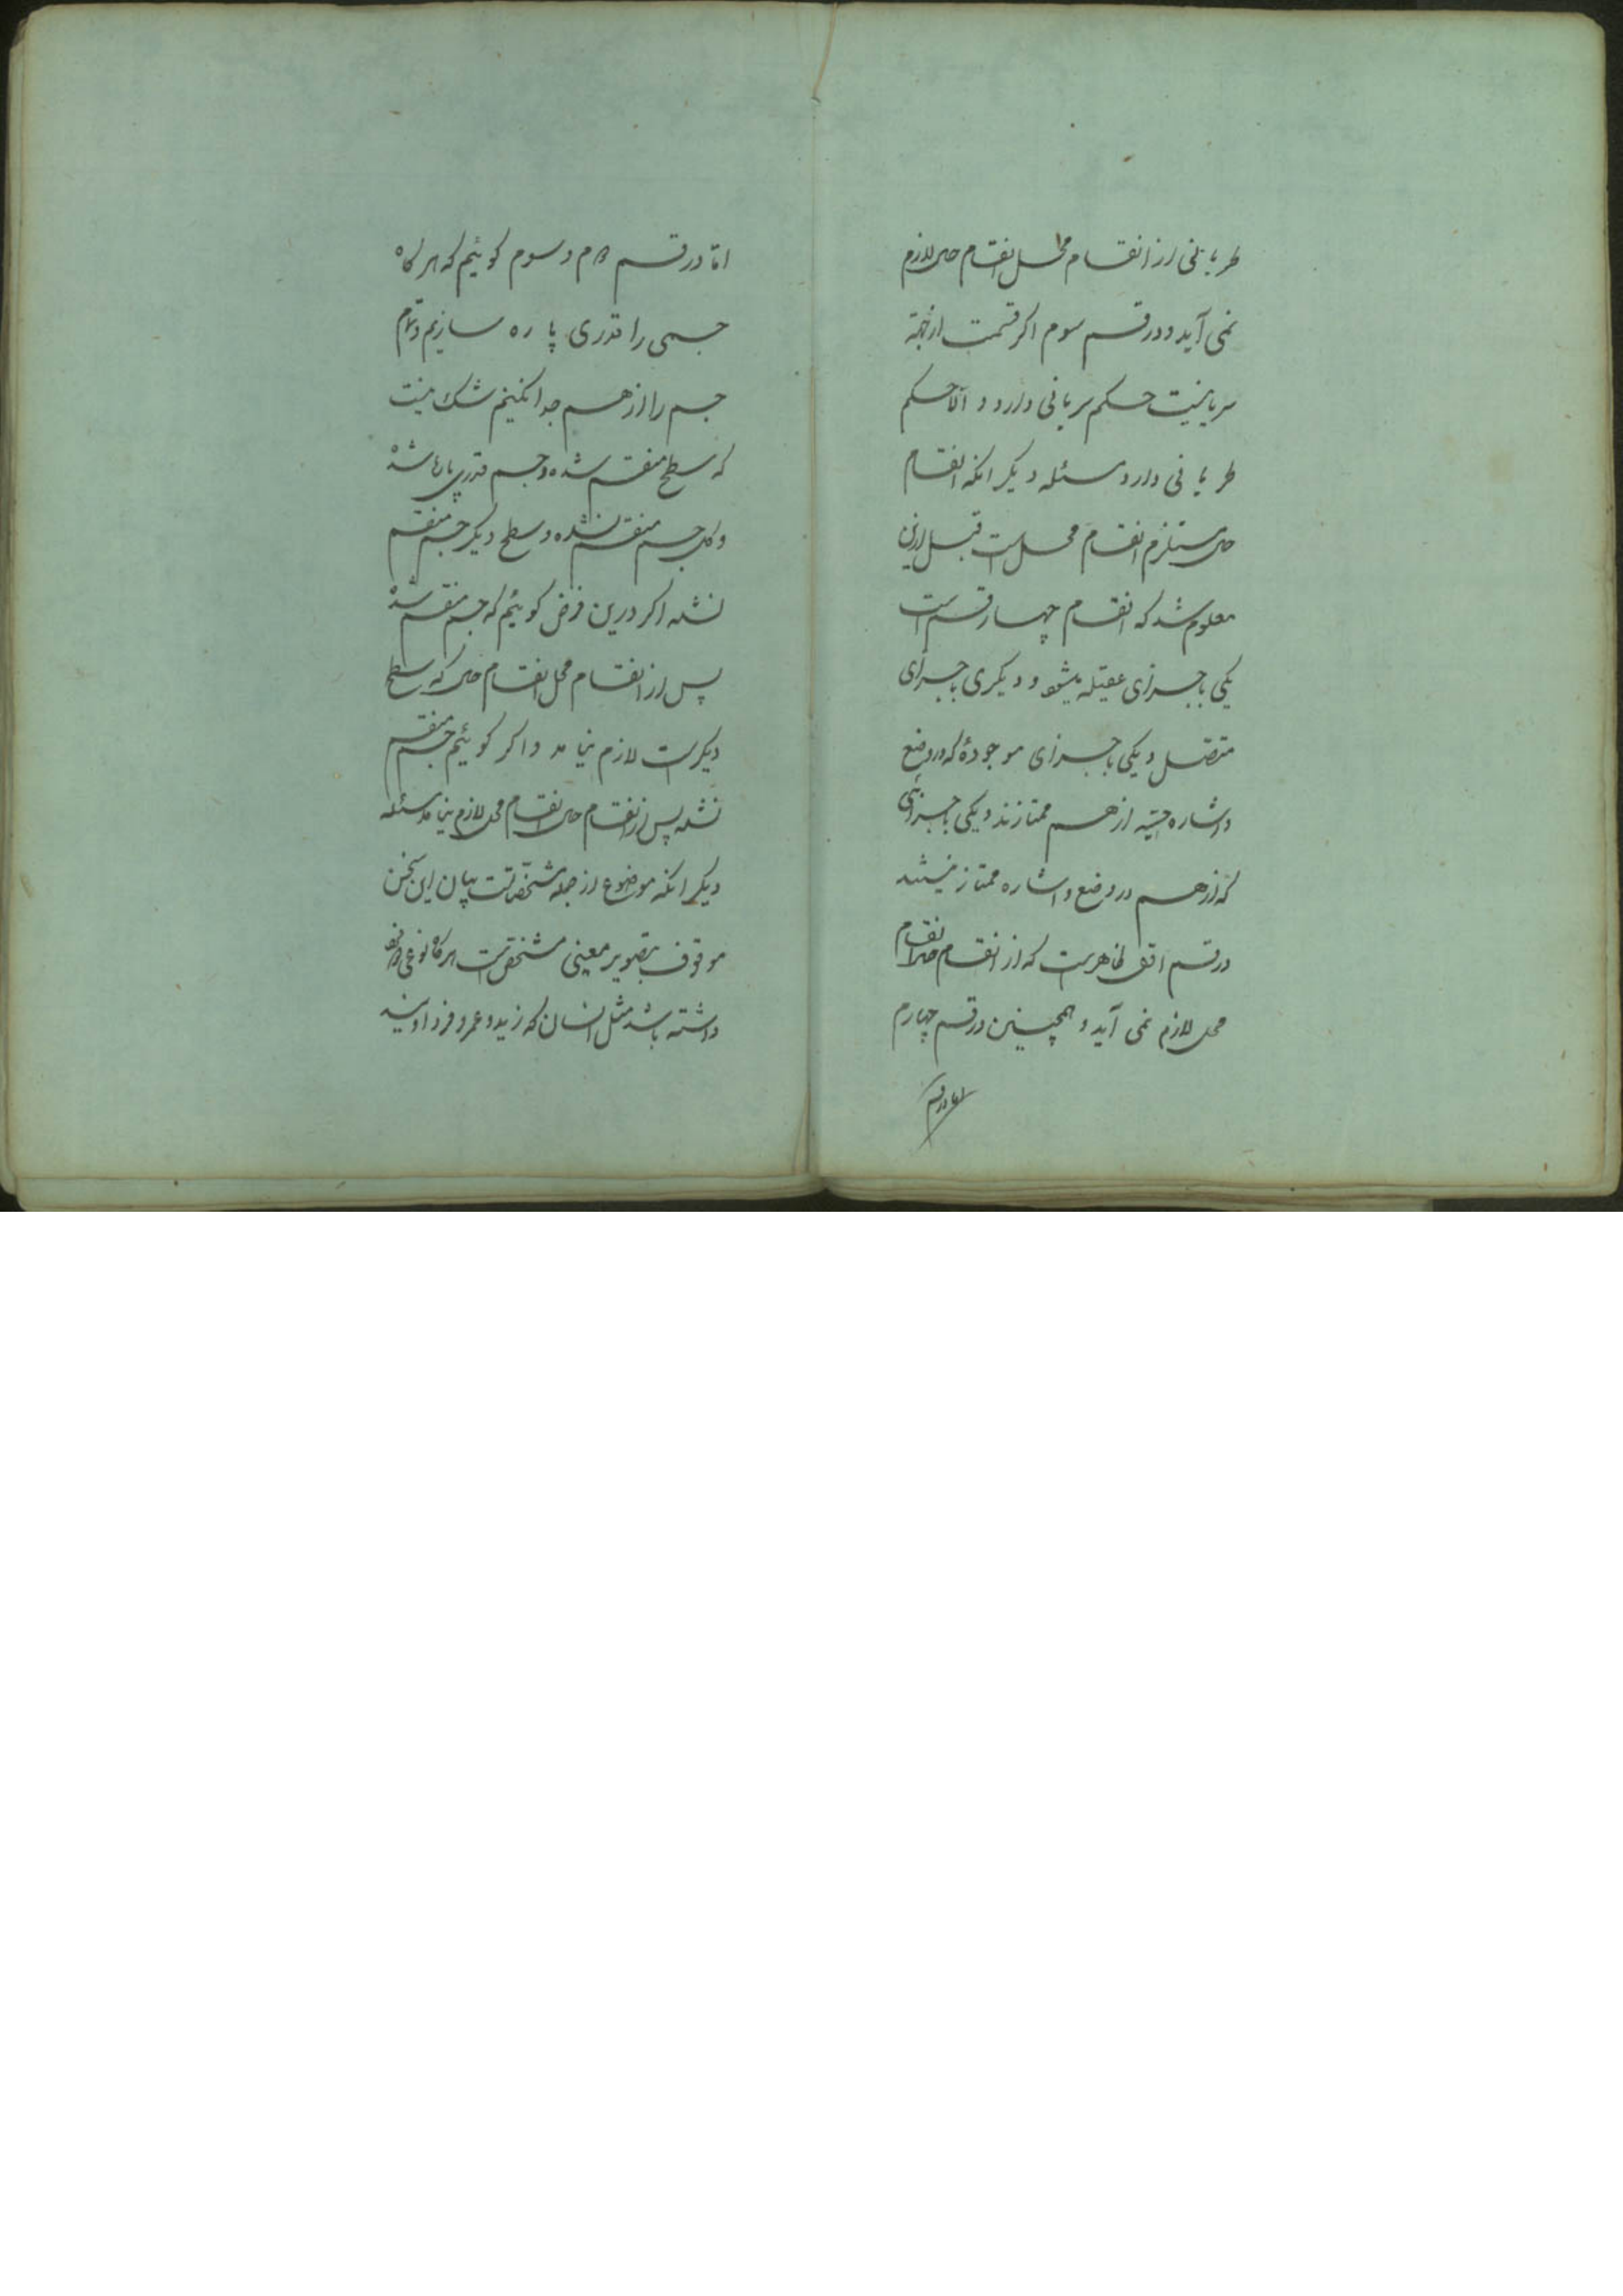 طریانی از انقسام محل انقسام حال لازم
نمی آید و در قسم سوم اگر قسمت از جهة
سریانیت حکم سریانی دارد و الا حکم
طریانی دارد مسئله دیگر انکه انقسام
حال مستلزم انقسام محل است قبل ازین
معلوم شد که انقسام چهار قسم است
یکی باجزای عقلیه میشود و دیگری باجزای
متصل و یکی باجزای موجودهٔ که در وضع
و اشاره حسیه از هم ممتازند و یکی باجزائی
که از هم در وضع و اشاره ممتاز نیستند
در قسم اول ظاهرست که از انقسام حال انقسام
محل لازم نمی آید و همچنین در قسم چهارم
اما در قسم
اما در قسم دوم و سوم گوئیم که هر گاه
جسمی را قدری پاره سازیم و تمام
جسم را از هم جدا نکنیم شک نیست
که سطح منقسم شده و جسم قدری پاره شده
و کل جسم منقسم نشده و سطح دیگر جسم منقسم
نشده اگر درین فرض گوئیم که جسم منقسم شده
پس از انقسام محل انقسام حال که سطح
دیگرست لازم نیامد و اگر گوئیم جسم منقسم
نشده پس از انقسام حال انقسام محل لازم نیامد مسئله
دیگر انکه موضوع از جمله مشخصاتست بیان این سخن
موقوف بتصویر معنی مشخص است هر گاه نوعی
داشته باشد مثل انسان که زید و عمرو فرد اویند